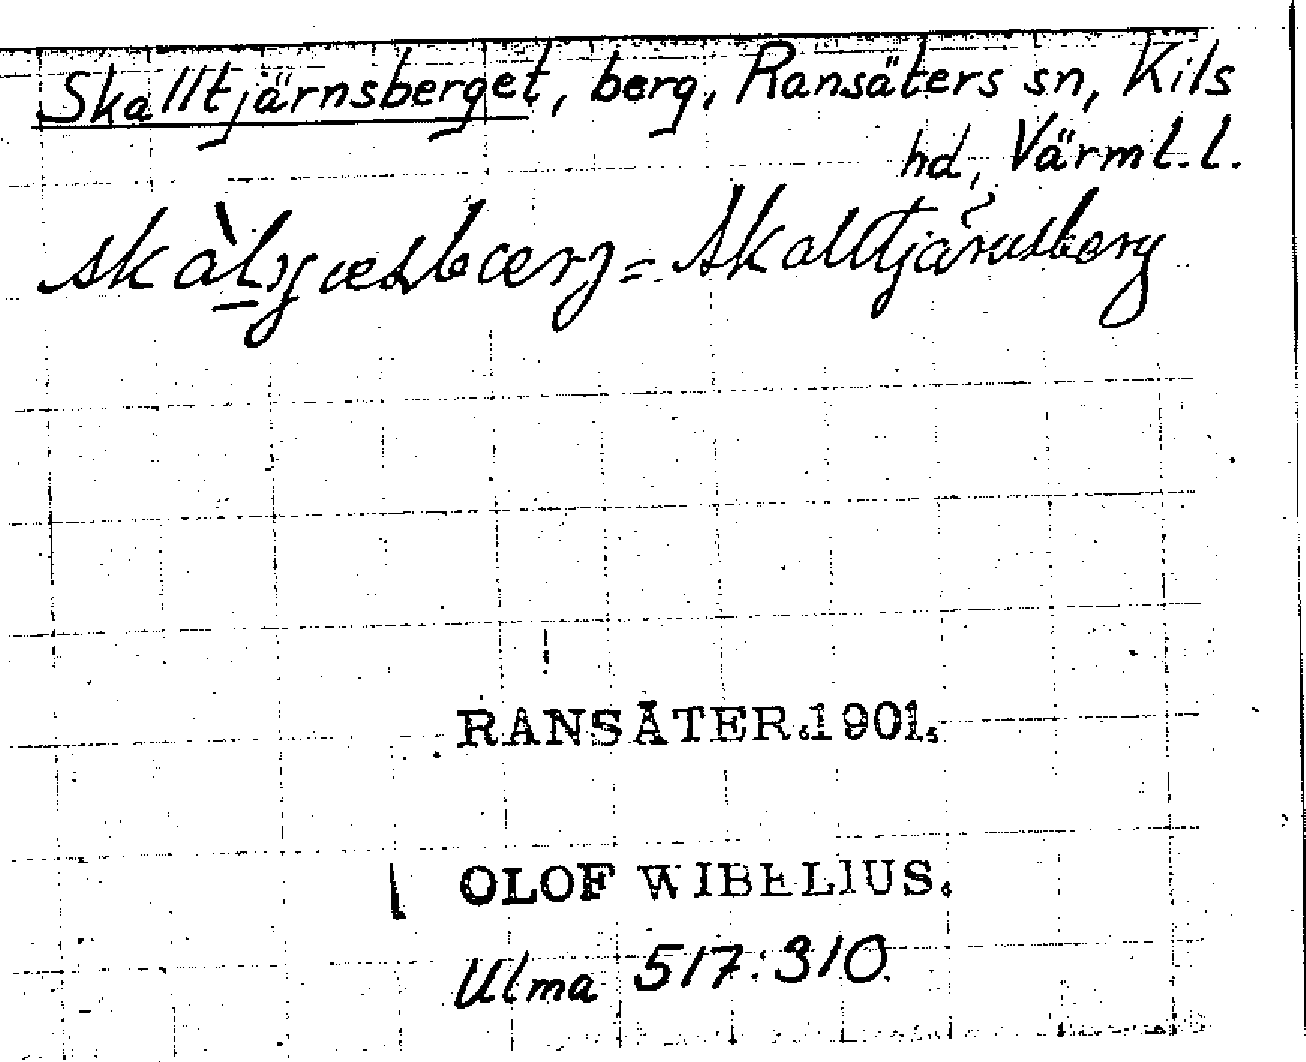 Skalltjärnsberget, berg, Ransäters sn, Kils
hd, Värml. l.
= Skalltjärnsberg
RANSÄTER.1901.
OLOF WIBELIUS.
Ulma 517:310.